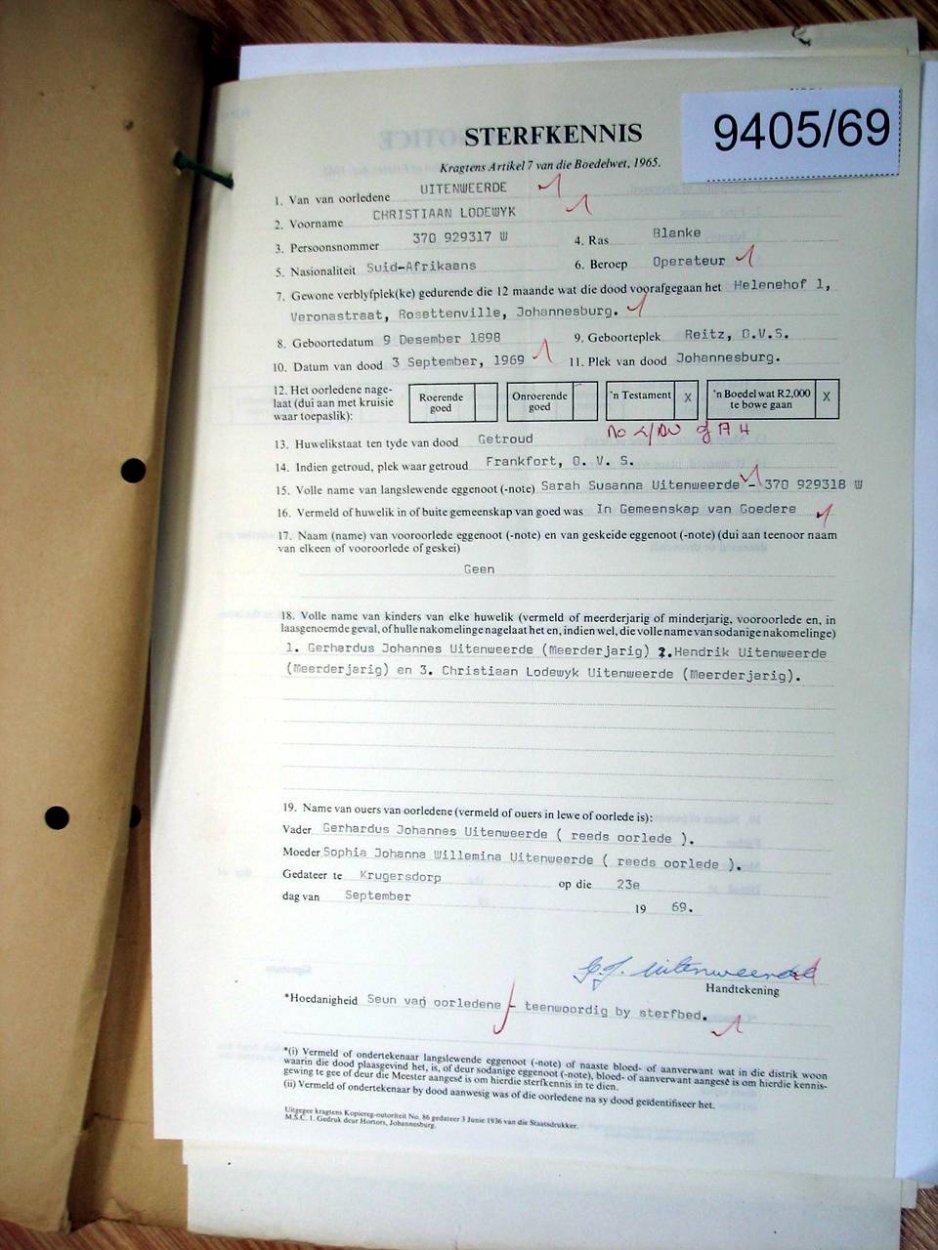 9405/69
STERFKENNIS
Kragtens Artikel 7 van die Boedelwet, 1965.
1. Van van oorledene UITENWEERDE
2. Voorname CHRISTIAAN LODEWYK
3. Persoonsnommer 370 929317 W 4. Ras Blanke
5. Nasionaliteit Suid-Afrikaans 6. Beroep Operateur
7. Gewone verblyfplek(ke) gedurende die 12 maande wat die dood voorafgegaan het Helenehof 1,
Veronastraat, Rosettenville, Johannesburg.
8. Geboortedatum 9 Desember 1898 9. Geboorteplek Reitz, O.V.S.
10. Datum van dood 3 September, 1969 11. Plek van dood Johannesburg.
12. Het oorledene nage-
laat (dui aan met kruisie
waar toepaslik):
Roerende
goed
Onroerende
goed
'n Testament X
'n Boedel wat R2,000
te bowe gaan X
13. Huwelikstaat ten tyde van dood Getroud
14. Indien getroud, plek waar getroud Frankfort, O. V. S.
15. Volle name van langslewende eggenoot (-note) Sarah Susanna Uitenweerde - 370 929318 W
16. Vermeld of huwelik in of buite gemeenskap van goed was In Gemeenskap van Goedere
17. Naam (name) van vooroorlede eggenoot (-note) en van geskeide eggenoot (-note) (dui aan teenoor naam
van elkeen of vooroorlede of geskei)
Geen
18. Volle name van kinders van elke huwelik (vermeld of meerderjarig of minderjarig, vooroorlede en, in
laasgenoemde geval, of hulle nakomelinge nagelaat het en, indien wel, die volle name van sodanige nakomelinge)
1. Gerhardus Johannes Uitenweerde (Meerderjarig) 2. Hendrik Uitenweerde
(Meerderjarig) en 3. Christiaan Lodewyk Uitenweerde (Meerderjarig).
19. Name van ouers van oorledene (vermeld of ouers in lewe of oorlede is):
Vader Gerhardus Johannes Uitenweerde ( reeds oorlede ).
Moeder Sophia Johanna Willemina Uitenweerde ( reeds oorlede ).
Gedateer te Krugersdorp op die 23e
dag van September 19 69.
G.J. Uitenweerde
Handtekening
*Hoedanigheid Seun van oorledene - teenwoordig by sterfbed.
*(i) Vermeld of ondertekenaar langslewende eggenoot (-note) of naaste bloed- of aanverwant wat in die distrik woon
waarin die dood plaasgevind het, is, of deur sodanige eggenoot (-note), bloed- of aanverwant aangesê is om hierdie kennis-
gewing te gee of deur die Meester aangesê is om hierdie sterfkennis in te dien.
(ii) Vermeld of ondertekenaar by dood aanwesig was of die oorledene na sy dood geïdentifiseer het.
Uitgegee kragtens Kopiereg-outoriteit No. 86 gedateer 3 Junie 1936 van die Staatsdrukker.
M.S.C. 1. Gedruk deur Hortors, Johannesburg.